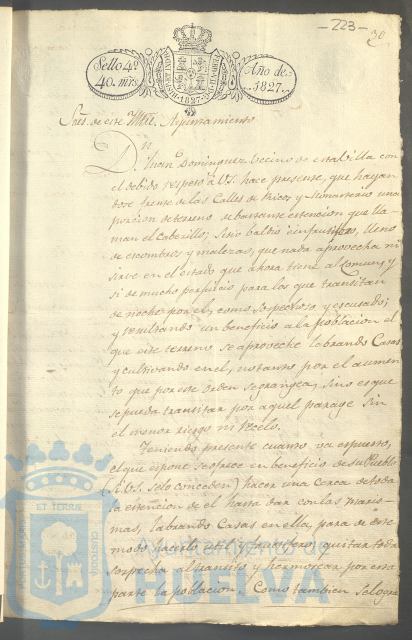 -223-
30
Sello 4º
40. mrs.
HISPANIARUM REX 1827
Año de
1827.
Sres. de este Iltre. Ayuntamiento
Dn. Juan Dominguez vecino de esta Villa con
el debido respeto a VS. hace presente, que hayan
dose frente de las Calles de Ricos y Monasterio una
porcion de terreno de bastante estencion que lla-
man el Cabezillo; sitio baldio é infrutifero, lleno
de escombros y malezas, que nada aprovecha ni
sirve en el estado que ahora tiene al Comun, y
si de mucho perjuicio para los que transitan
de noche por el, como sospechoso y escusado;
y resultando un beneficio a la poblacion el
que este terreno se aproveche labrando Casas
y cultivando en el, no tanto por el aumen-
to que por este orden se grangea, sino es que
se pueda transitar por aquel parage sin
el menor riesgo ni recelo.
Teniendo presente cuanto va espuesto,
el que espone se ofrece en beneficio de su Pueblo
(si VS. se lo conceden) hacer una Cerca de toda
la estencion de el hasta dar con las maris-
mas, labrando Casas en ella, para de este
modo hacerlo util y quitar toda
sospecha al transito y hermosear por esa
parte la poblacion. Como tambien se logra
ET TERRAE
CUSTODIA
Ayuntamiento de
HUELVA